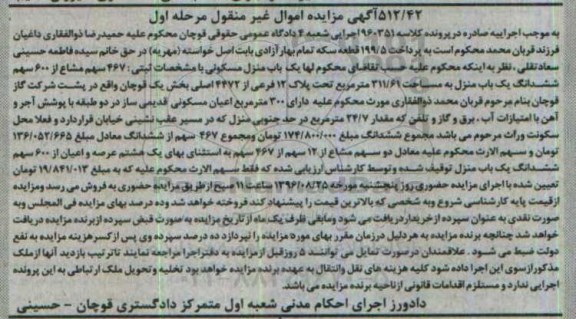 ۵۱۲/۴۲آگهی مزایده اموال غیر منقول مرحله اول
به موجب اجراییه صادره در پرونده کلاسه ۹۶۰۳۵۱ اجرایی شعبه ۴ دادگاه عمومی حقوقی قوچان محکوم علیه حمیدرضا ذوالفقاری داغیان
فرزند قربان محمد محکوم است به پرداخت ۱۹۹/۵ قطعه سکه تمام بهار آزادی بابت اصل خواسته (مهریه) در حق خانم سیده فاطمه حسینی
سعادتقلی ، نظر به اینکه محکوم علیه حسب تقاضای محکوم لها یک باب منزل مسکونی با مشخصات ثبتی : ۴۶۷ سهم مشاع از ۶۰۰ سهم
ششدانگ یک باب منزل به مساحت ۳۱۱/۶۹ مترمربع تحت پلاک ۱۲ فرعی از ۴۴۷۲ اصلی بخش یک قوچان واقع در پشت شرکت گاز
قوچان بنام مرحوم قربان محمد ذوالفقاری مورث محکوم علیه دارای ۳۰۰ مترمربع اعیان مسکونی قدیمی ساز در دو طبقه با پوشش آجر و
آهن با امتیازات آب ، برق و گاز و تلفن که مقدار ۲۴/۷ مترمربع در حد جنوبی منزل که در مسیر عقب نشینی خیابان قرار دارد و فعلا محل
سکونت وراث مرحوم می باشد مجموع ششدانگ مبلغ ۱۷۴/۸۰۰/۰۰۰ تومان ومجموع ۴۶۷ سهم از ششدانگ معادل مبلغ ۱۳۶/۰۵۲/۶۶۵
تومان و سهم الارث محکوم علیه معادل دو سهم مشاع از ۱۲ سهم از ۴۶۷ سهم به استثنای بهای یک هشتم عرصه و اعیان از ۶۰۰ سهم
ششدانگ یک باب منزل توقیف شده و توسط کارشناس ارزیابی شده که فقط سهم الارث محکوم علیه که به مبلغ ۱۹/۸۴۱/۰۱۳ تومان
تعیین شده با اجرای مزایده حضوری روز پنجشنبه مورخه ۱۳۹۶/۰۸/۲۵ ساعت ۱۱ صبح از طریق مزایده حضوری به فروش می رسد ومزایده
از قیمت پایه کارشناسی شروع وبه شخصی که بالاترین قیمت را پیشنهاد کند فروخته خواهد شد وده درصد بهای مزایده فی المجلس وبه
صورت نقدی به عنوان سپرده از خریدار دریافت می شود ومابقی ظرف یک ماه از تاریخ مزایده به صورت قبض سپرده از برنده مزایده دریافت
خواهد شد چنانچه برنده مزایده به هر دلیل در زمان مقرر بهای مورد مزایده را نپردازد ده درصد سپرده وی پس از کسر هزینه مزایده به نفع
دولت ضبط می شود . علاقمندان در صورت تمایل می توانند ۵ روز قبل از مزایده به دفتر اجرا مراجعه نمایند تا ترتیب بازدید آنها از ملک
مذکور از سوی این اجرا داده شود کلیه هزینه های نقل وانتقال به عهده برنده مزایده خواهد بود تخلیه و تحویل ملک ارتباطی به این پرونده
اجرایی ندارد و مستلزم اقدامات قانونی از ناحیه برنده مزایده می باشد.
دادورز اجرای احکام مدنی شعبه اول متمرکز دادگستری قوچان - حسینی